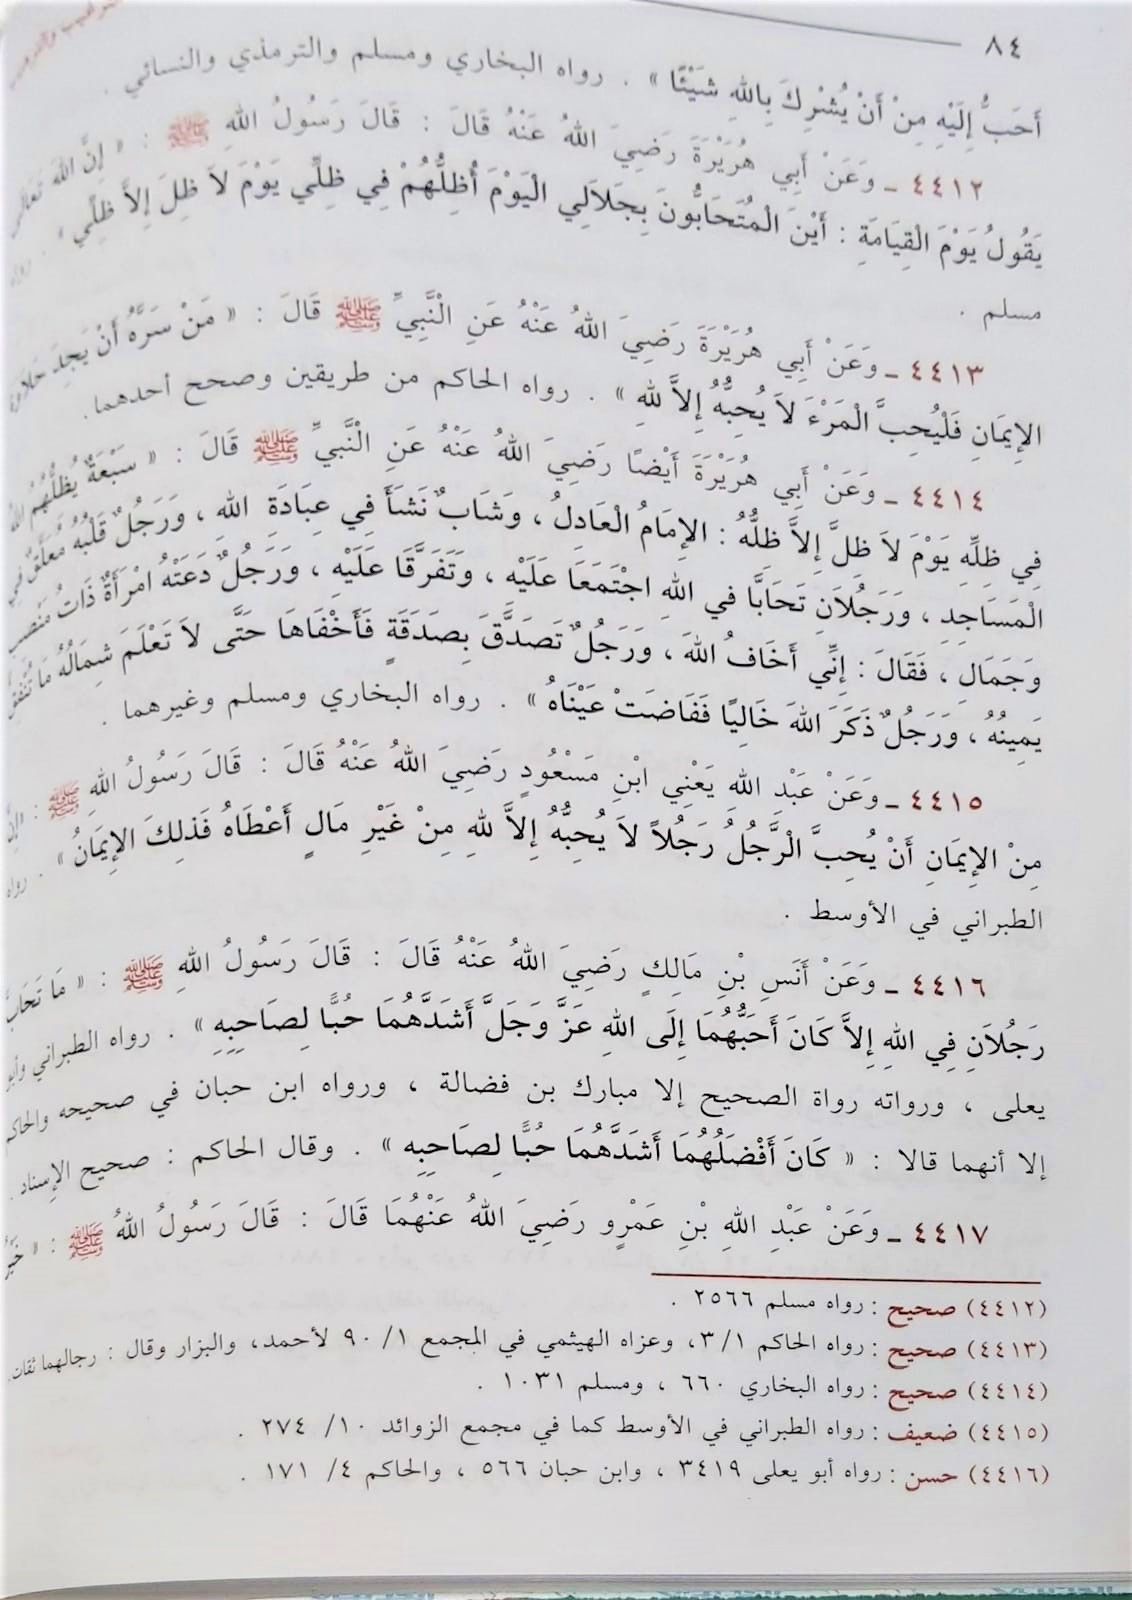 ٨٤
أَحَبُّ إِلَيْهِ مِنْ أَنْ يُشْرِكَ بِاللهِ شَيْئًا » . رواه البخاري ومسلم والترمذي والنسائي .
٤٤١٢ ـ وَعَنْ أَبِي هُرَيْرَةَ رَضِيَ اللهُ عَنْهُ قَالَ : قَالَ رَسُولُ اللهِ ﷺ : « إِنَّ اللهَ تَعَالَى
يَقُولُ يَوْمَ الْقِيَامَةِ : أَيْنَ الْمُتَحَابُّونَ بِجَلَالِي الْيَوْمَ أُظِلُّهُمْ فِي ظِلِّي يَوْمَ لاَ ظِلَ إِلاَّ ظِلِّي » . رواه
مسلم .
٤٤١٣ ـ وَعَنْ أَبِي هُرَيْرَةَ رَضِيَ اللهُ عَنْهُ عَنِ الْنَّبِيِّ ﷺ قَالَ : « مَنْ سَرَّهُ أَنْ يَجِدَ حَلاَوَةَ
الإِيمَانِ فَلْيُحِبَّ الْمَرْءَ لاَ يُحِبُّهُ إِلاَّ للهِ » . رواه الحاكم من طريقين وصحح أحدهما .
٤٤١٤ ـ وَعَنْ أَبِي هُرَيْرَةَ أَيْضًا رَضِيَ اللهُ عَنْهُ عَنِ الْنَّبِيِّ ﷺ قَالَ : « سَبْعَةٌ يُظِلُّهُمُ اللهُ
فِي ظِلِّهِ يَوْمَ لاَ ظلَّ إِلاَّ ظلُّهُ : الإِمَامُ الْعَادِلُ ، وَشَابٌ نَشَأَ فِي عِبَادَةِ اللهِ ، وَرَجُلٌ قَلْبُهُ مُعَلَّقٌ فِي
الْمَسَاجِدِ ، وَرَجُلاَنِ تَحَابَّا في اللهِ اجْتَمَعَا عَلَيْهِ ، وَتَفَرَّقَا عَلَيْهِ ، وَرَجُلٌ دَعَتْهُ امْرَأَةٌ ذَاتُ مَنْصِبٍ
وَجَمَالٍ ، فَقَالَ : إِنِّي أَخَافُ اللهَ ، وَرَجُلٌ تَصَدَّقَ بِصَدَقَةٍ فَأَخْفَاهَا حَتَّى لاَ تَعْلَمَ شِمَالُهُ مَا تُنْفِقُ
يَمِينُهُ ، وَرَجُلٌ ذَكَرَ اللهَ خَالِيًا فَفَاضَتْ عَيْنَاهُ » . رواه البخاري ومسلم وغيرهما .
٤٤١٥ ـ وَعَنْ عَبْدِ اللهِ يَعْنِي ابْنِ مَسْعُودٍ رَضِيَ اللهُ عَنْهُ قَالَ : قَالَ رَسُولُ اللهِ ﷺ : « إِنَّ
مِنْ الإِيمَانِ أَنْ يُحِبَّ الْرَّجُلُ رَجُلاً لاَ يُحِبُّهُ إِلاَّ للهِ مِنْ غَيْرِ مَالٍ أَعْطَاهُ فَذلِكَ الإِيمَانُ » . رواه
الطبراني في الأوسط .
٤٤١٦ ـ وَعَنْ أَنَسِ بْنِ مَالِكٍ رَضِيَ اللهُ عَنْهُ قَالَ : قَالَ رَسُولُ اللهِ ﷺ : « مَا تَحَابَّ
رَجُلاَنِ فِي اللهِ إِلاَّ كَانَ أَحَبُّهُمَا إِلَى اللهِ عَزَّ وَجَلَّ أَشَدَّهُمَا حُبًّا لِصَاحِبِهِ » . رواه الطبراني وأبو
يعلى ، ورواته رواة الصحيح إلا مبارك بن فضالة ، ورواه ابن حبان في صحيحه والحاكم
إلا أنهما قالا : « كَانَ أَفْضَلُهُمَا أَشَدَّهُمَا حُبًّا لِصَاحِبِه » . وقال الحاكم : صحيح الإِسناد .
٤٤١٧ ـ وَعَنْ عَبْدِ اللهِ بْنِ عَمْرٍو رَضِيَ اللهُ عَنْهُمَا قَالَ : قَالَ رَسُولُ اللهُ ﷺ : « خَيْرُ
(٤٤١٢) صحيح : رواه مسلم ٢٥٦٦ .
(٤٤١٣) صحيح : رواه الحاكم ١/ ٣، وعزاه الهيثمي في المجمع ١/ ٩٠ لأحمد، والبزار وقال : رجالهما ثقات.
(٤٤١٤) صحيح : رواه البخاري ٦٦٠ ، ومسلم ١٠٣١ .
(٤٤١٥) ضعيف : رواه الطبراني في الأوسط كما في مجمع الزوائد ١٠/ ٢٧٤ .
(٤٤١٦) حسن : رواه أبو يعلى ٣٤١٩ ، وابن حبان ٥٦٦ ، والحاكم ٤/ ١٧١ .